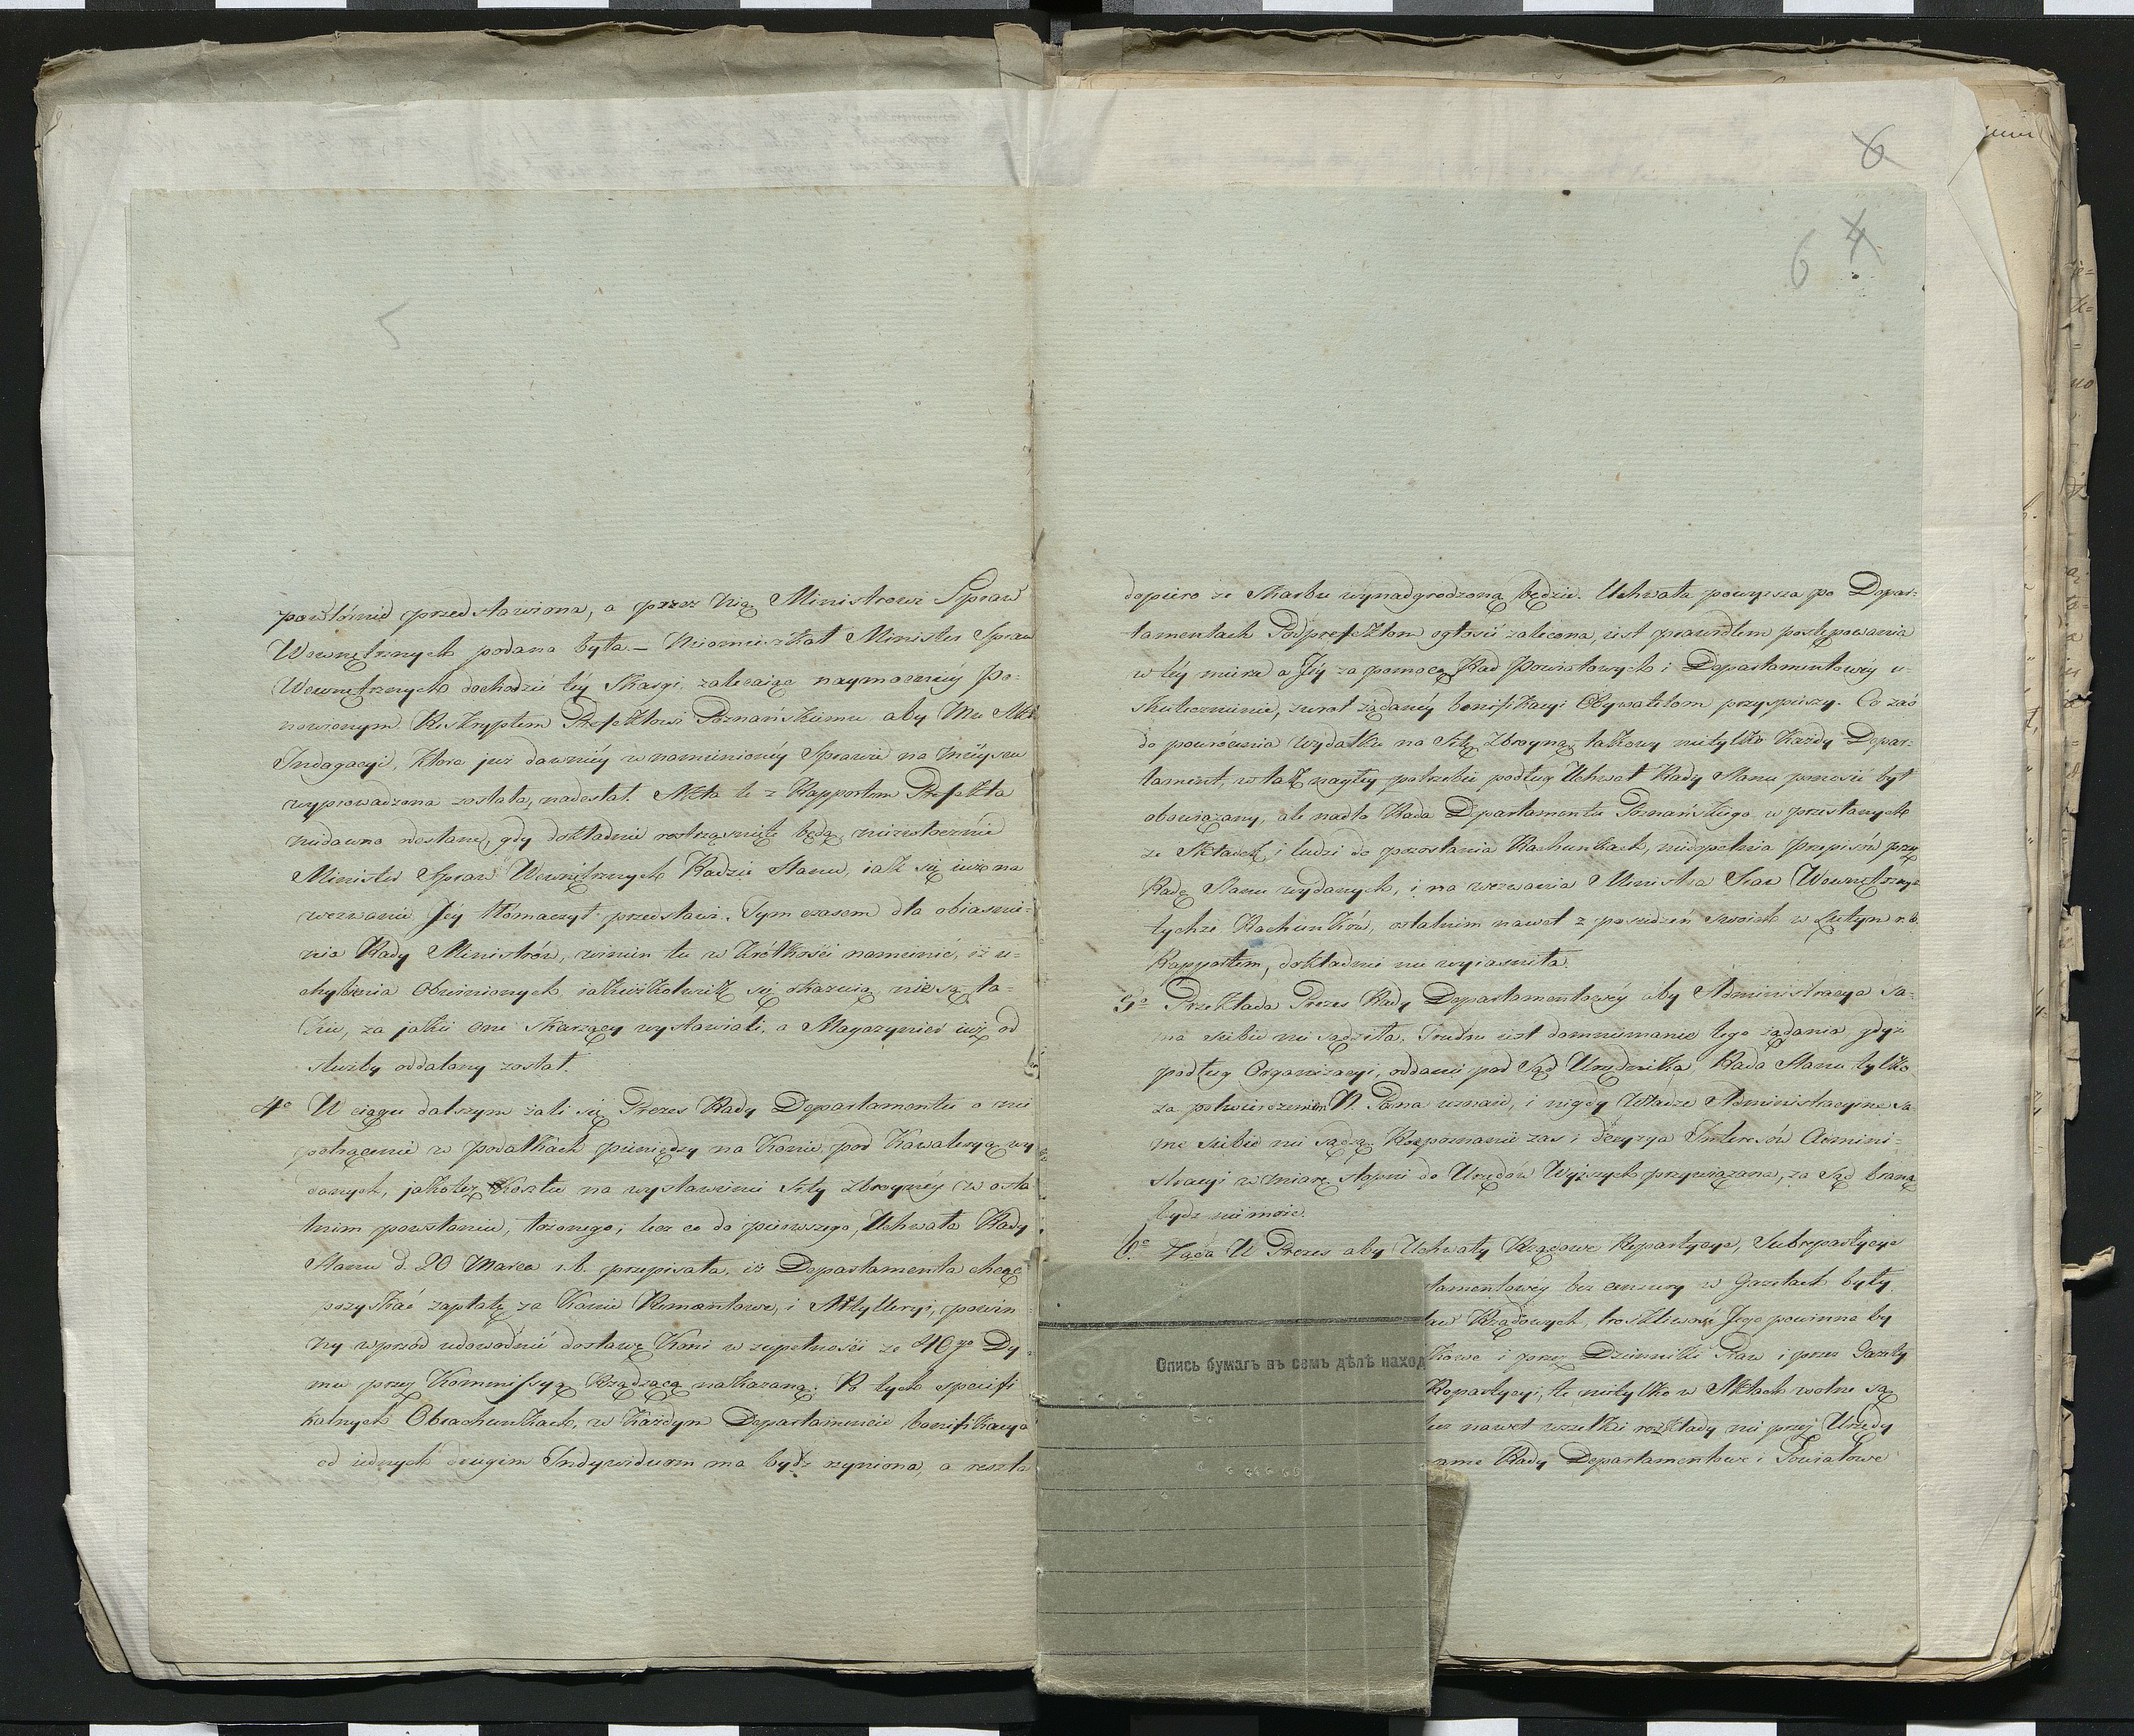 5
powtórnie przedstawiona, a przez nią Ministrowi Spraw
Wewnętrznych podana była. – Nieomieszkał Minister Spraw
Wewnętrznych dochodzić téy Skargi, zalecaiąc naymocniéy Po-
nowionym Reskryptem Prefektowi Poznańskiemu aby Mu Akta
Indagacyi, która już dawniéy w namienionéy Sprawie na mieyscu
wyprowadzona została, nadesłał. Akta te z Rapportem Prefekta
niedawno nadesłane, gdy dokładnie roztrząśnięte będą, niezwłocznie
Minister Spraw Wewnętrznych Radzie Stanu, iak się iuż na
wezwanie Jéy tłómaczył przedstawi. Tym czasem dla obiaśnie-
nia Rady Ministrów, winien tu w krótkości namienić, iż u-
chybienia Obwinionych iakieżkolwiek się okazuią, nie są ta-
kie, za jakie one Skarżący wystawiali, a Magazynier iuż od
służby oddalony został.
4o W ciągu dalszym żali się Prezes Rady Departamentu o nie
potrącenie w podatkach pieniędzy na Konie pod Kawaleryą wy
danych, jakoteż Kosztu na wystawienie Siły Zbroynéy w osta
tnim powstaniu, łożonego; lecz co do pierwszego, Uchwała Rady
Stanu d. 20 Marca r.b. przepisała, iż Departamenta chcąc
pozyskać zapłatę za Konie Remontowe, i Artylleryi, powin-
ny wprzód udowodnić dostawę Koni w zupełności ze 40go Dy
mu przez Kommissyą Rządzącą nakazaną. Po tych specifi
kalnych Obrachunkach, w każdym Departamencie bonifikacya
od iednych drugim Indywiduom ma bydź czyniona, a reszta
6
6 4
dopiero ze Skarbu wynadgrodzoną będzie. Uchwała powyższa po Depar-
tamentach Podprefektom ogłosić zalecona, iest prawidłem postępowania
w téy mierze a Jéy za pomocą Rad Powiatowych i Departamentowéy u-
skutecznienie, zwrot żądanéy bonifikacyi Obywatelom przyspieszy. Co zaś
do powrócenia wydatku na Siłę Zbroyną, takowy nietylko każdy Depar-
tament, w tak nagłéy potrzebie podług Uchwał Rady Stanu ponosić był
obowiązany, ale nadto Rada Departamentu Poznańskiego w przesłanych
ze Składek i ludzi do powstania Rachunkach, niedopełnia przepisów przez
Radę Stanu wydanych, i na wezwania Ministra Spraw Wewnętrznych
tychże Rachunków, ostatnim nawet z posiedzeń swoich w Lutym r.b.
Rapportem, dokładnie nie wyiaśniła.
5o Przekłada Prezes Rady Departamentowéy aby Administracya sa-
ma siebie nie sądziła. Trudne iest domniemanie tego żądania gdyż
podług Organizacyi, oddanie pod Sąd Urzędnika, Rada Stanu tylko
za potwierdzeniem N. Pana uznaie, i nigdy Władze Administracyine sa-
me siebie nie sądzą. Rozpoznanie zaś i decyzya Interesów Admini-
stracyi w miarę stopni do Urzędów Wyższych przywiązana, za Sąd braną
bydź nie może.
6o Żąda W Prezes aby Uchwały Rządowe Repartycye, Subrepartycye
tamentowéy bez cenzury w Gazetach były
Rządowych, troskliwość Jego powinna by
kowe i przez Dzienniki Praw i przez Gazety
Repartycyi, te nietylko w Aktach wolne są
lecz nawet wszelkie rozkłady nie przez Urzędy
ame Rady Departamentowe i Powiatowe
Опись бумагъ въ семъ дѣлѣ наход